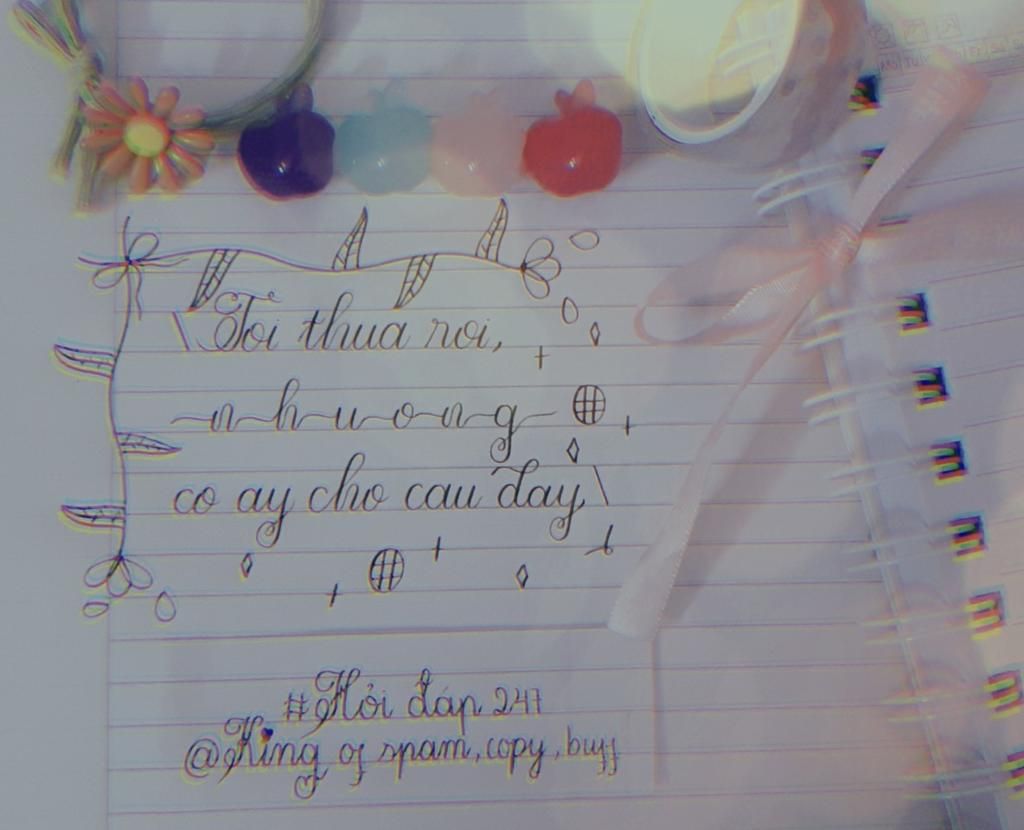 \ Toi thua roi,
~nhuong~
co ay cho cau đay \
#Hỏi đáp 247
@King of spam, copy, buff